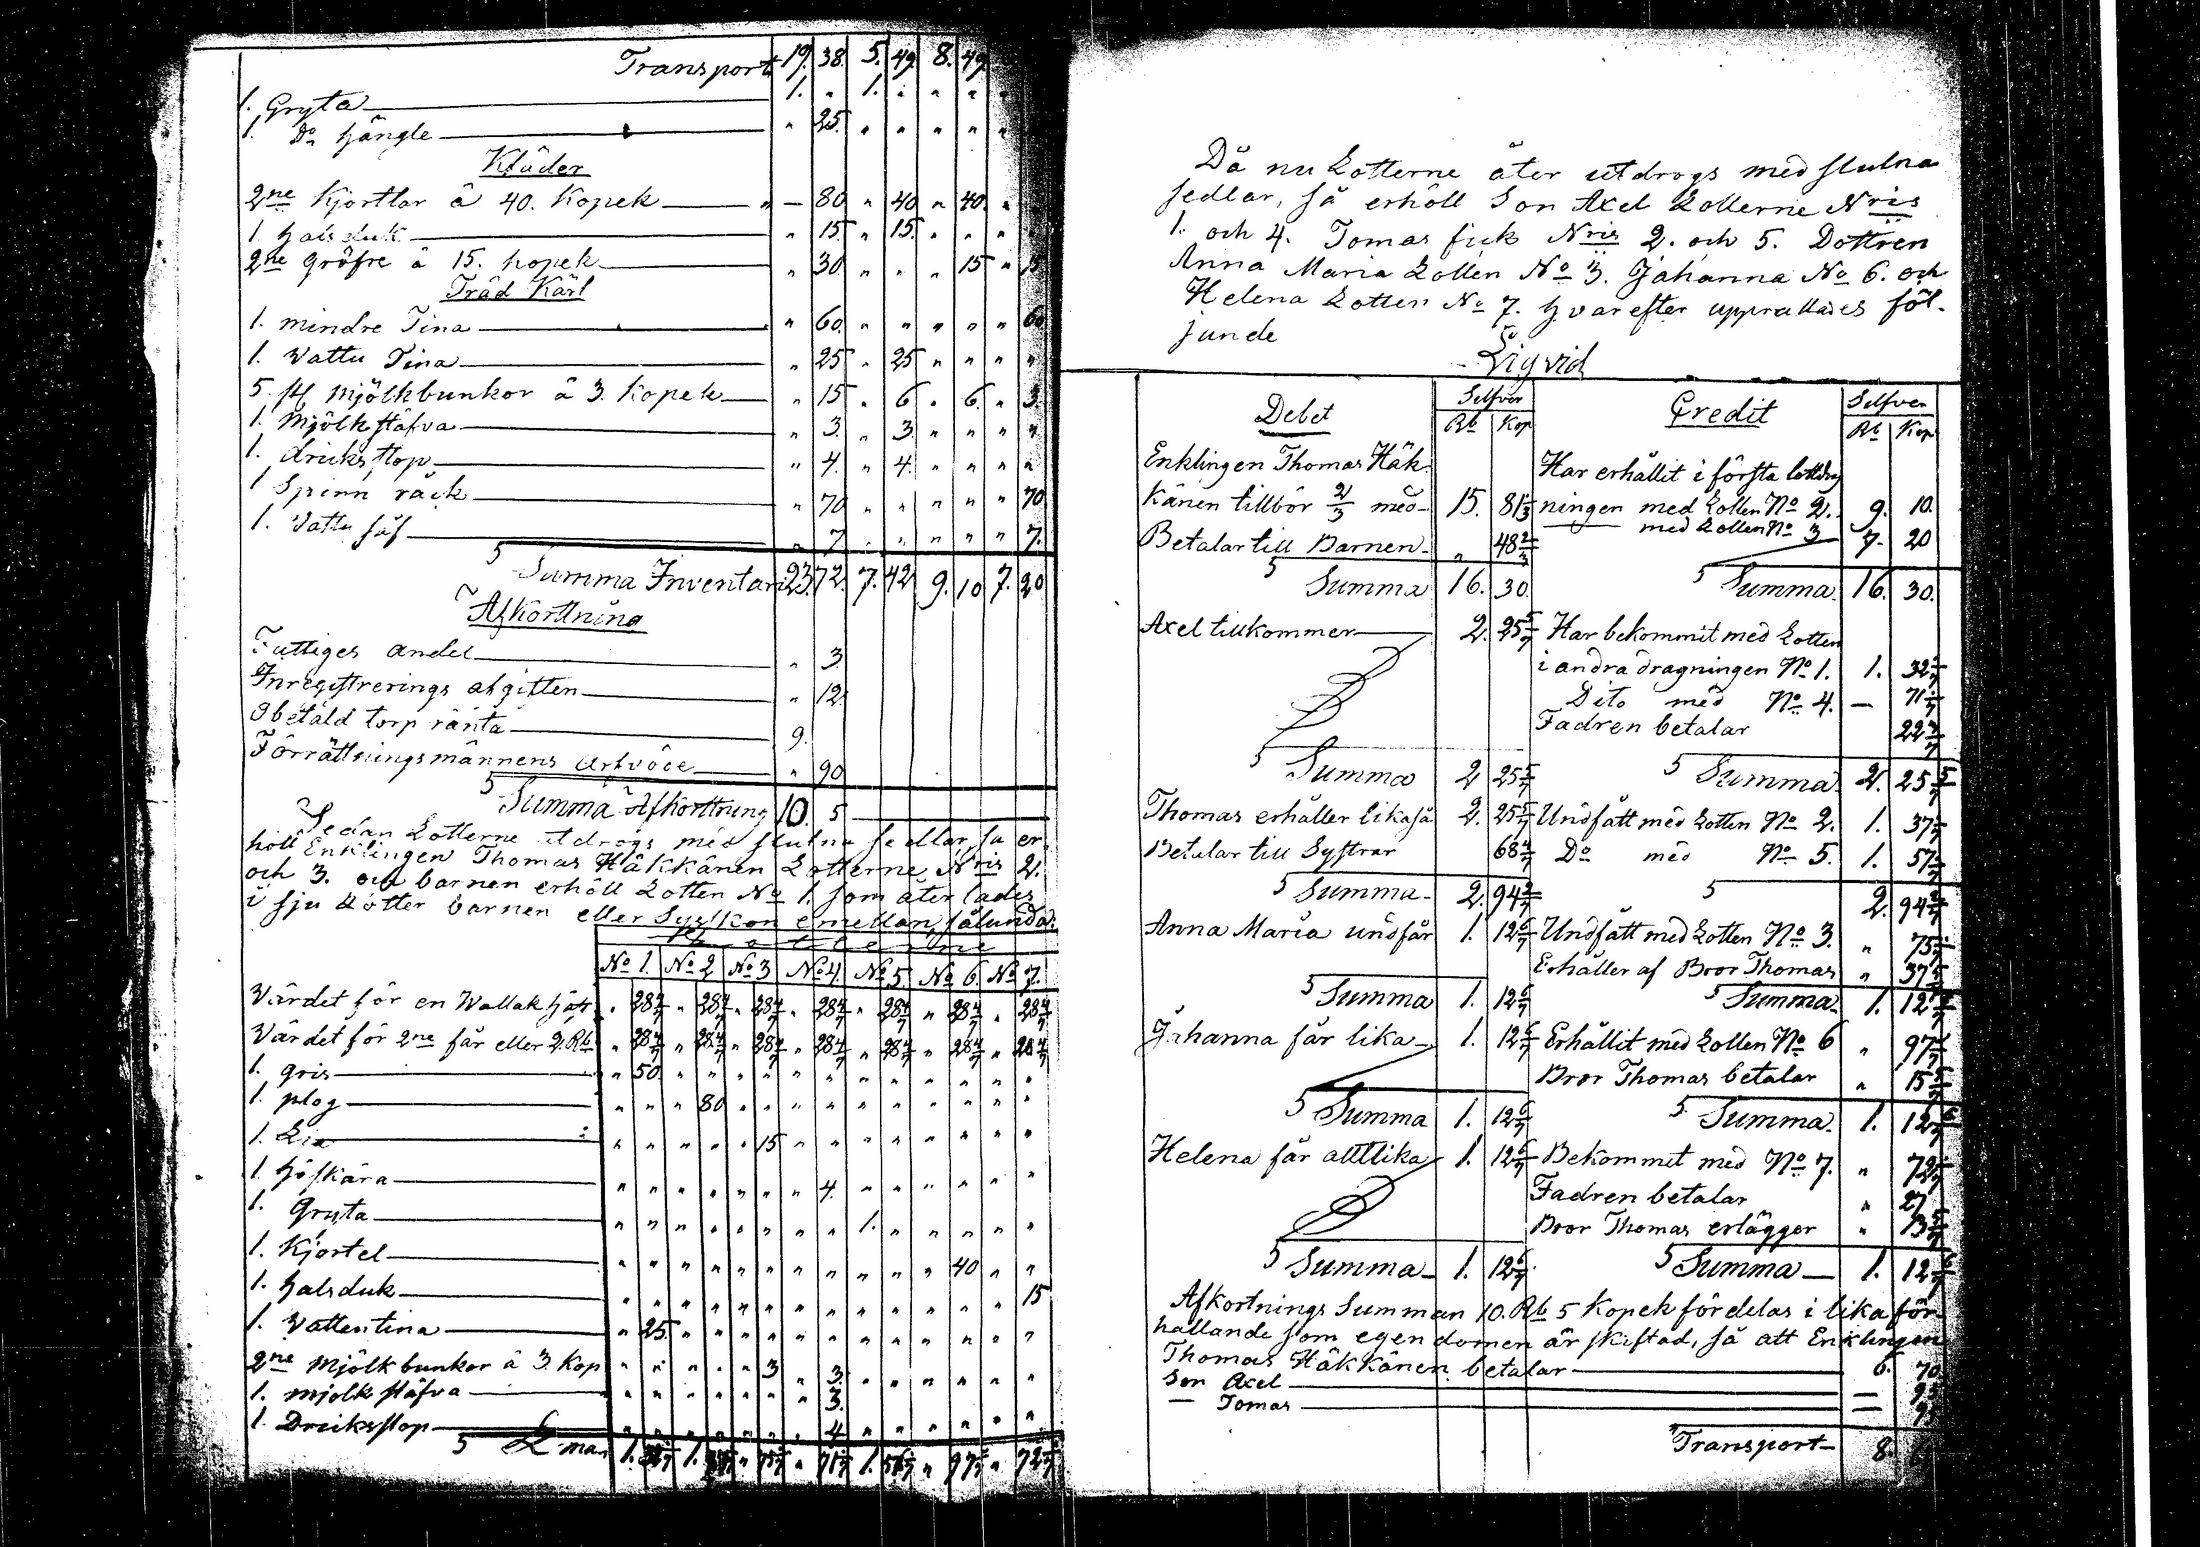 Transport 19. 38. 5. 49. 8. 49.
1. Gryta 1. " 1. " " "
1. Do hängle " 25. " " " " "
Kläder
2ne Kjortlar â 40. Kopek " 80. " 40. " 40. "
1 halsduk " 15. " 15. " " "
2ne gröfre â 15. kopek " 30. " " " 15 " 15
Träd Kärl
1. mindre Tina " 60. " " " " " 60
1. Vattu Tina " 25 " 25 " " " "
5 st mjölkbunkor â 3. Kopek " 15 " 6 " 6. " 3.
1. Mjölkstäfva " 3. " 3. " " " "
1. dricksstop " 4. " 4. " " " "
1 Spinn råck " 70 " " " " " 70
1. Vattu såf " 7 " " " " " 7.
Summa Inventari 23. 72. 7. 42 9. 10 7. 20
Afkorttning
Fattiges andel " 3
Inregistrerings afgiften " 12.
Obetald torp ränta 9.
Förrättningsmännens Arfvode " 90
Summa Afkorttning 10. 5
Sedan Lotterne utdrogs med slutna sedlar, så er
höll Enklingen Thomas Häkkänen Lotterne Nris 2.
och 3. och barnen erhöll Lotten No 1. som åter lades
i sju Lotter barnen eller Syskon emellan, sålunda:
Lotterne
No 1. No 2 No 3 No 4. No 5. No 6. No 7.
Värdet för en Wallak häst " 28 4/7 " 28 4/7 " 28 4/7 " 28 4/7 " 28 4/7 " 28 4/7 " 28 4/7
Värdet för 2ne får eller 2. Rb " 28 4/7 " 28 4/7 " 28 4/7 " 28 4/7 " 28 4/7 " 28 4/7 " 28 4/7
1. gris " 50. " " " " " " " " " " " "
1. plog " " " 80 " " " " " " " " " "
1. Lia " " " " " 15 " " " " " " " "
1 höskära " " " " " " " 4. " " " " " "
1. Gryta " " " " " " " " 1. " " " " "
1. Kjortel " " " " " " " " " " " 40 " "
1. halsduk " " " " " " " " " " " " " 15
1. Vattentina " 25. " " " " " " " " " " " "
2ne Mjölkbunkor â 3. Kop " " " " " 3 " 3. " " " " " "
1. mjölkstäfva " " " " " " " 3.
1. Dricksstop " " " " " " " 4 " " " " " "
1. 1. " 75 1/7 " 71 1/7 1. " 97 1/7 " 72 1/7
Då nu Lotterne åter utdrogs med slutna
sedlar, så erhöll Son Axel Lotterne Nris
1. och 4. Tomas fick Nris 2. och 5. Dottren
Anna Maria Lotten No 3. Johanna No 6. och
Helena Lotten No 7. hvarefter upprättades föl-
jande
Liqvid
Debet Silfver Credit Silfver
Rb Kop Rb Kop
Enklingen Thomas Häk- Har erhållit i första lottdrag
känen tillhör 2/3 med 15. 81 1/3 ningen med Lotten No 2. 9. 10.
med Lotten No 3 7. 20
Betalar till Barnen " 48 2/3
Summa 16. 30. Summa. 16. 30.
Axel tillkommer 2. 25 5/7 Har bekommit med Lotten
i andra dragningen No 1. 1. 32 1/7
Dito med No 4. — 71 1/7
Fadren betalar 22 3/7
Summa 2 25 5/7 Summa 2. 25 5/7
Thomas erhåller likaså 2. 25 5/7 Undfått med Lotten No 2. 1. 37 1/7
Betalar till Systrar 68 4/7 Do med No 5. 1. 57 1/7
Summa 2. 94 2/7 2. 94 2/7
Anna Maria undfår 1. 12 6/7 Undfått med Lotten No 3. " 75 1/7
Erhåller af Bror Thomas " 37 5/7
Summa 1. 12 6/7 Summa 1. 12 6/7
Johanna får lika 1. 12 6/7 Erhållit med Lotten No 6 " 97 1/7
Bror Thomas betalar " 15 5/7
Summa 1. 12 6/7 Summa. 1. 12 6/7
Helena får alltlika 1. 12 6/7 Bekommet med No 7. " 72 1/7
Fadren betalar " 27
Bror Thomas erlägger " 13 5/7
Summa 1. 12 6/7 Summa 1. 12 6/7
Afkortnings Summan 10. Rb 5 Kopek fördelas i lika för
hållande som egendomen är skiftad, så att Enklingen
Thomas Häkkänen betalar 6. 70
Son Axel —
— Tomas —
Transport 8.